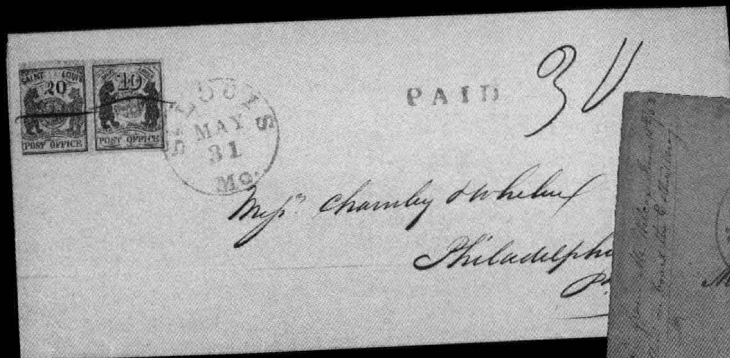 SAINT LOUIS
20
POST OFFICE
10
POST OFFICE
ST. LOUIS
MAY
31
Mo.
PAID
30
Messrs. Charnley & Whelen
Philadelphi
Pa
M